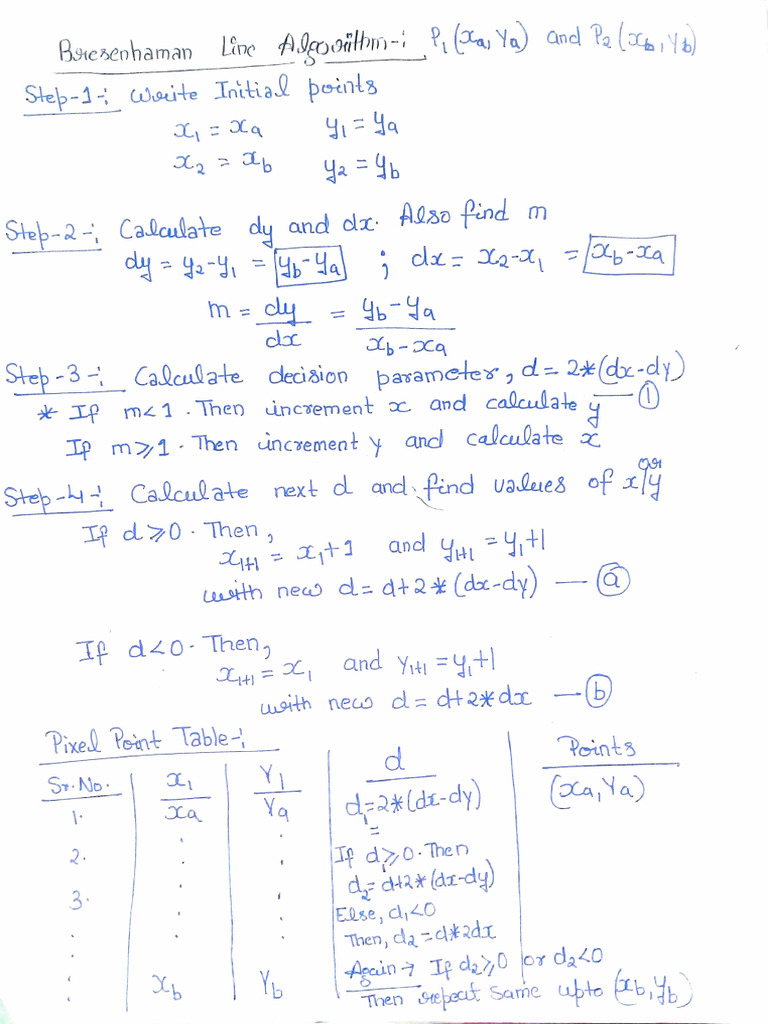 Bresenhaman Line Algorithm-: P₁(xa, Ya) and P₂(xb, Yb)
Step-1-: Write Initial points
x₁ = xa y₁ = ya
x₂ = xb y₂ = yb
Step-2-: Calculate dy and dx. Also find m
dy = y₂-y₁ = yb-ya ; dx = x₂-x₁ = xb-xa
m = dy/dx = yb-ya/xb-xa
Step-3-: Calculate decision parameter, d = 2*(dx-dy) — ①
* If m<1. Then increment x and calculate y
If m⩾1. Then increment y and calculate x
Step-4-: Calculate next d and find values of x/y or
If d⩾0. Then,
x₁₊₁ = x₁+1 and y₁₊₁ = y₁+1
with new d = d+2*(dx-dy) — ⓐ
If d<0. Then,
x₁₊₁ = x₁ and y₁₊₁ = y₁+1
with new d = d+2*dx — ⓑ
Pixel Point Table-:
Sr.No. x₁ Y₁ d Points
1. xa Ya d₁=2*(dx-dy) (xa, Ya)
=
2. If d₁⩾0. Then
d₂=d+2*(dx-dy)
3. Else, d₁<0
Then, d₂=d*2dx
xb Yb Again → If d₂⩾0 or d₂<0
Then repeat same upto (xb, yb)